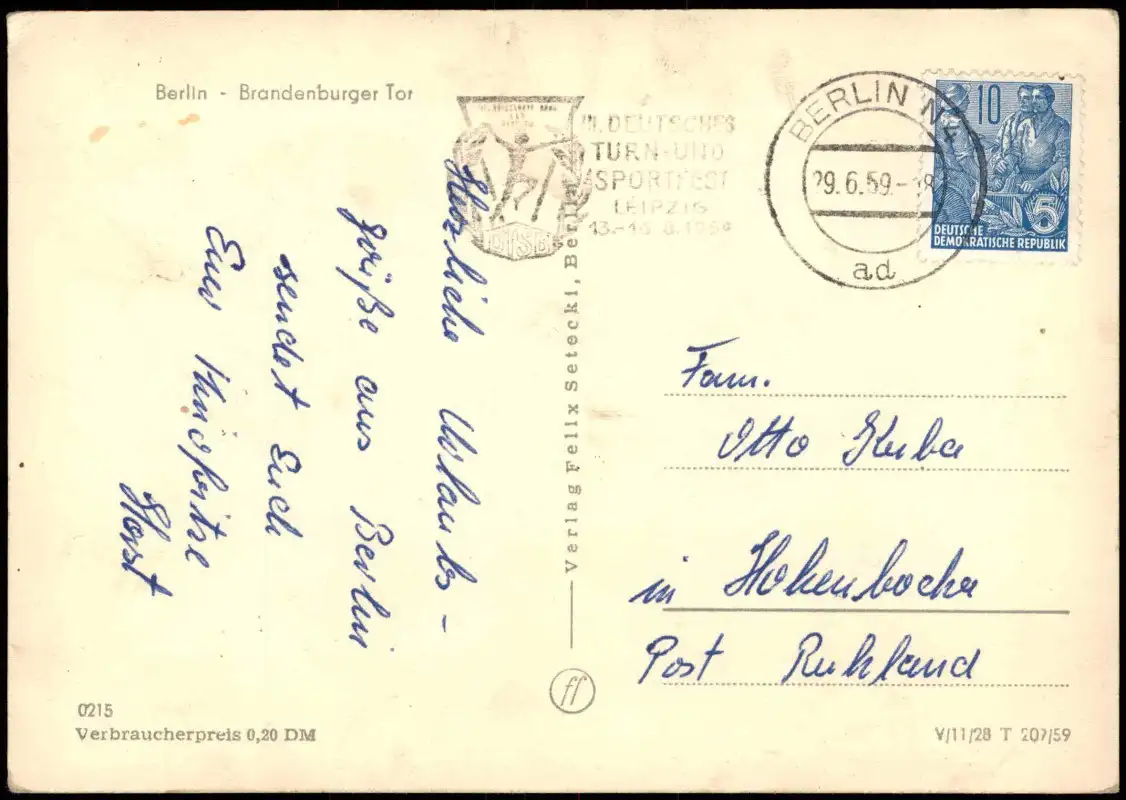 Berlin - Brandenburger Tor
III. DEUTSCHES
TURN- UND
SPORTFEST
LEIPZIG
13.-16. 8. 1959
DTSB
BERLIN
29.6.59.-18
ad
10
5
DEUTSCHE
DEMOKRATISCHE REPUBLIK
Herzliche Urlaubs-
grüße aus Berlin
sendet Euch
Euer
Horst
Verlag Felix Setecki, Berlin
Fam.
Otto Kuba
in Hohenbocka
Post Ruhland
ff
0215
Verbraucherpreis 0,20 DM
V/11/28 T 207/59